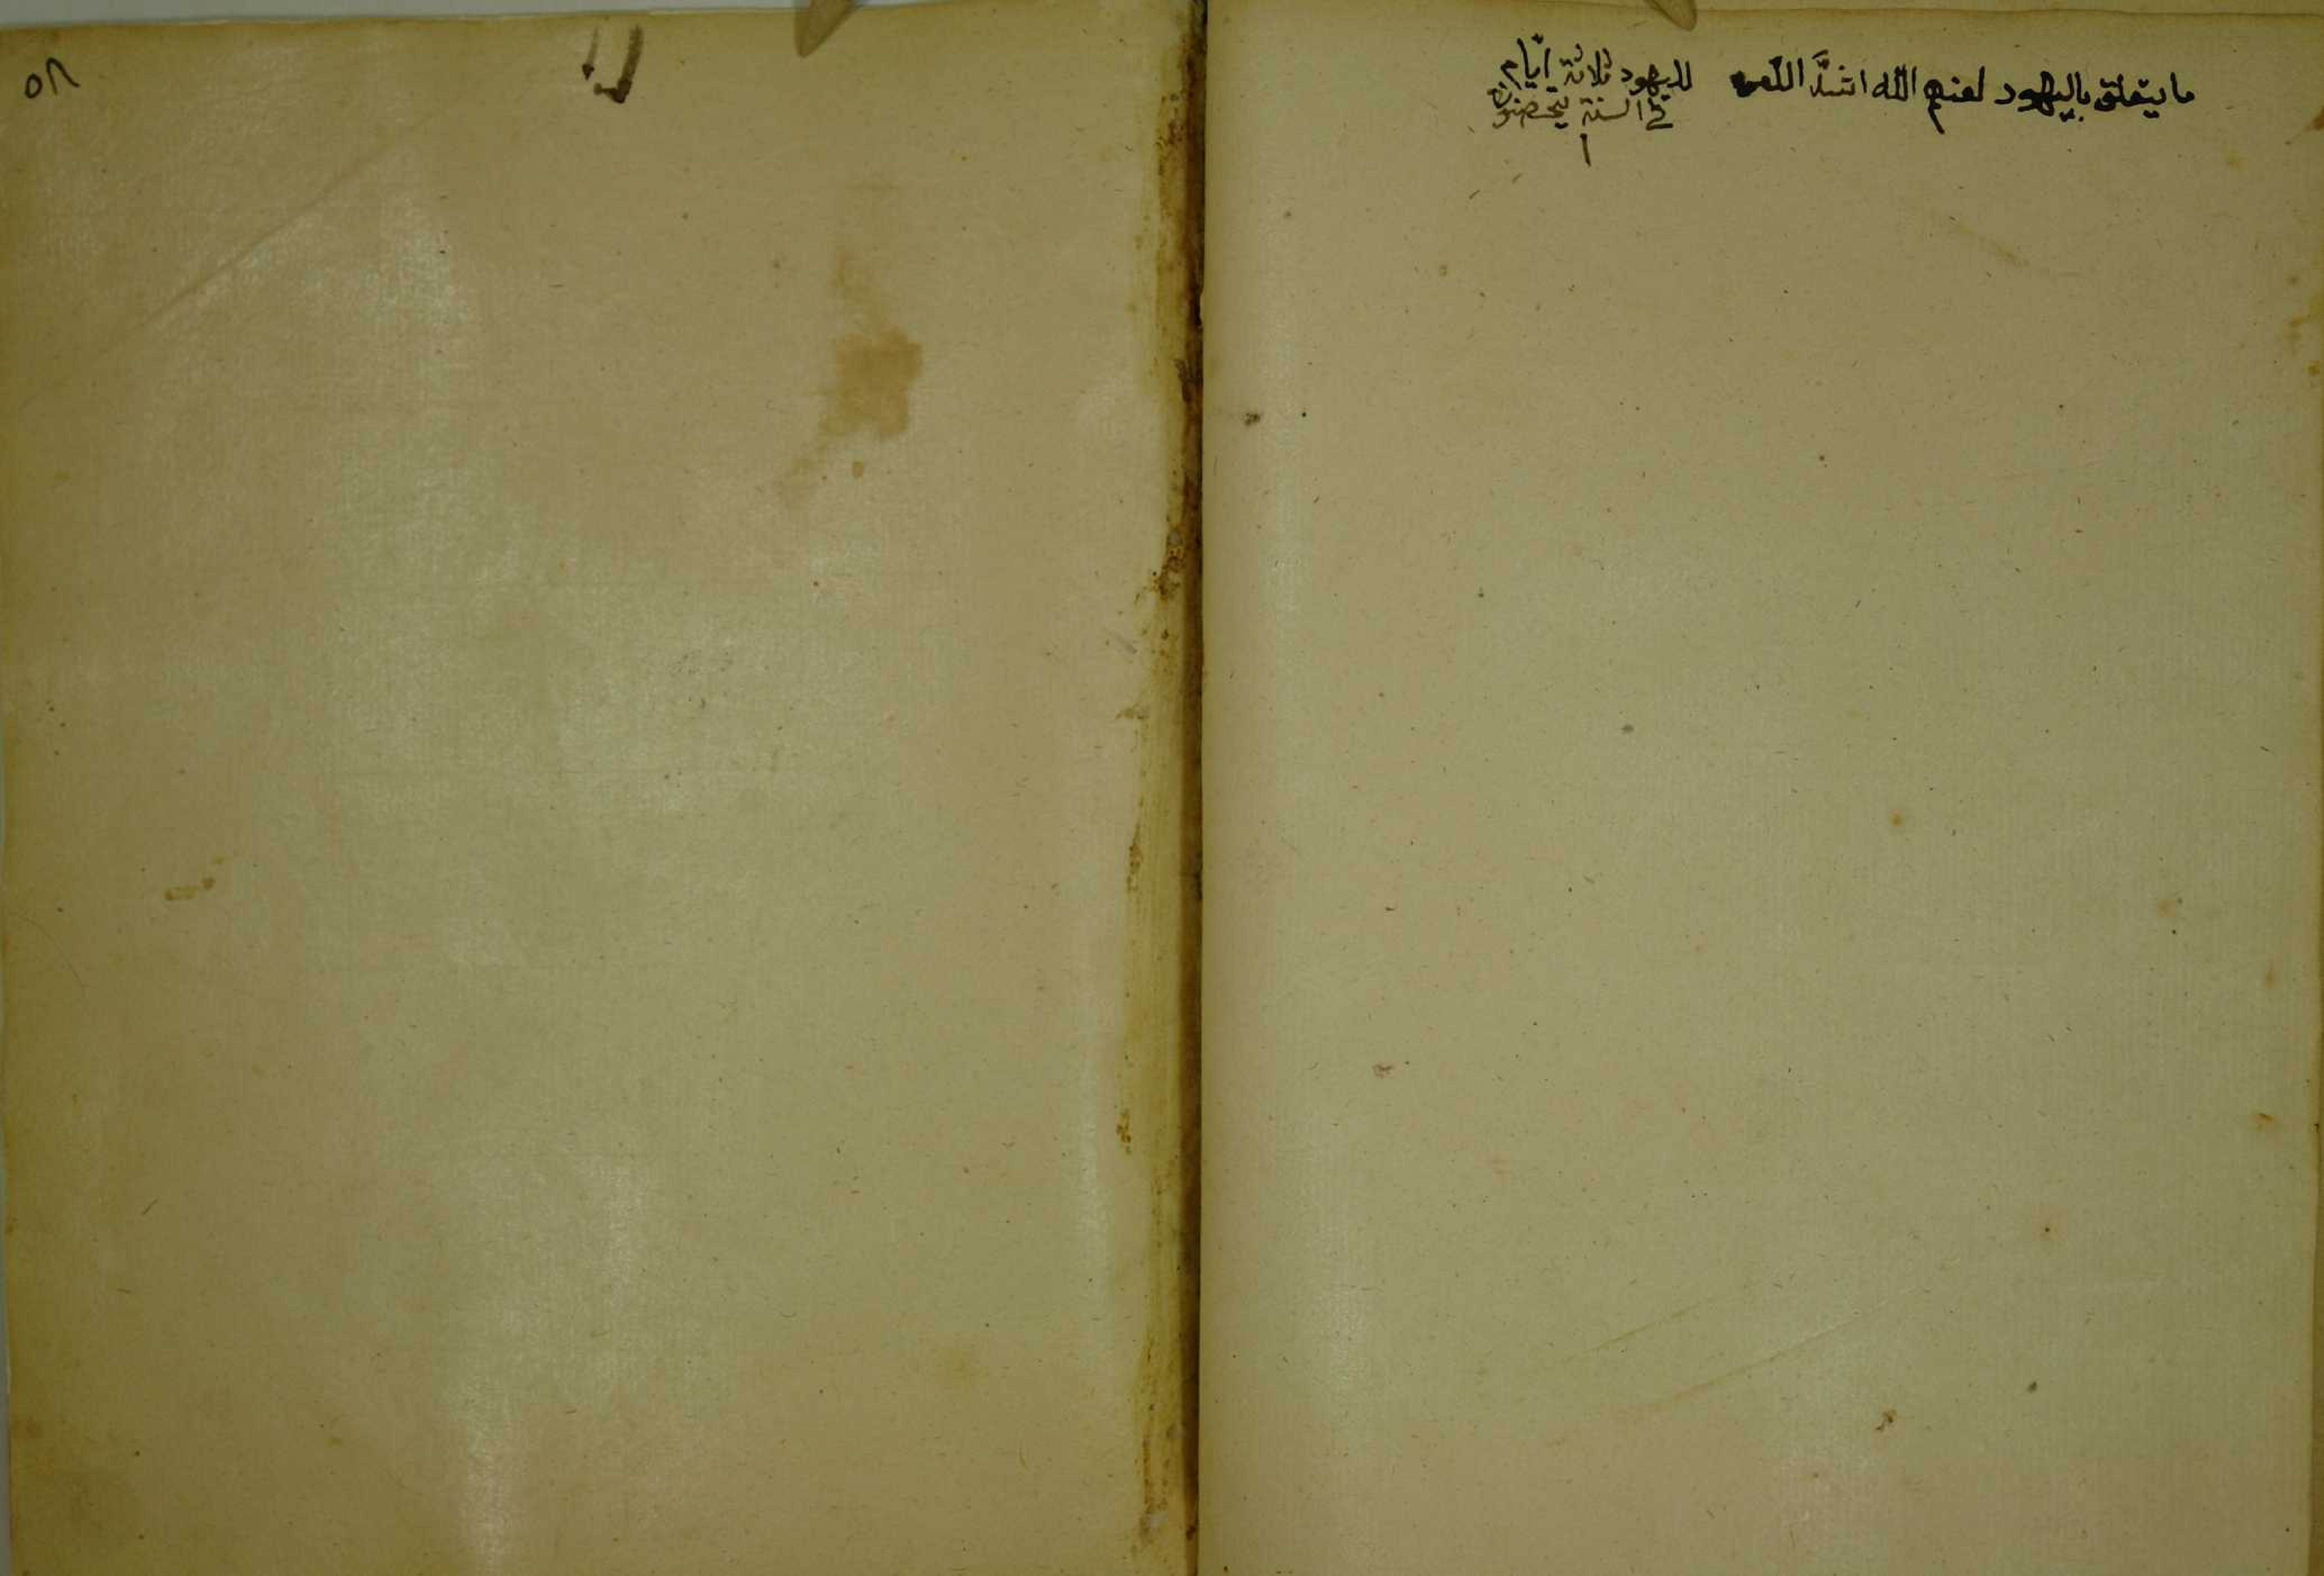 ما يتعلق باليهود لعنهم الله اشدَّ اللعن
لليهود ثلاثة ايّام
في السنة
١
٥٨